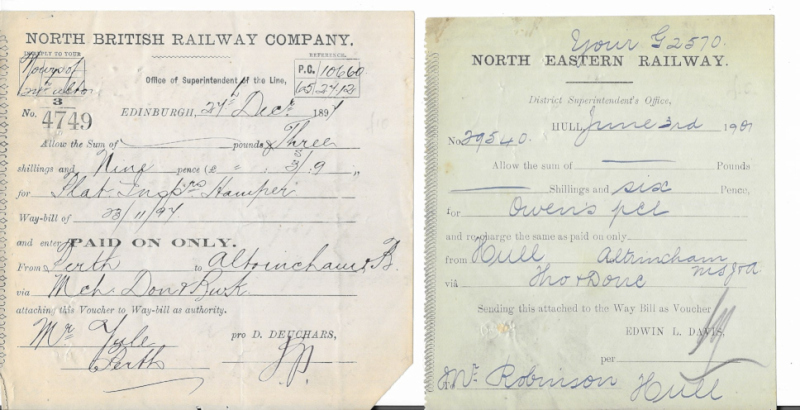 NORTH BRITISH RAILWAY COMPANY.
REPLY TO YOUR
REFERENCE.
Office of Superintendent of the Line,
P.C. 10660
65/2412
3
No. 4749
EDINBURGH, 24th Decr. 1897
Allow the Sum of pounds Three
shillings and Nine pence (£ " 3/9 "
for Hamper
Way-bill of 23/11/97
and enter PAID ON ONLY.
From Perth to Altrincham
via
attaching this Voucher to Way-bill as authority.
Mr
pro D. DEUCHARS,
Perth
Your G2570.
NORTH EASTERN RAILWAY.
District Superintendent's Office,
HULL, June 3rd 1901
No. 29540.
Allow the sum of Pounds
Shillings and six Pence,
for Owens pcl
and re-charge the same as paid only on
from Hull Altrincham
via Tho & Donc
Sending this attached to the Way Bill as Voucher
EDWIN L. DAVIS,
per
Mr. Robinson Hull